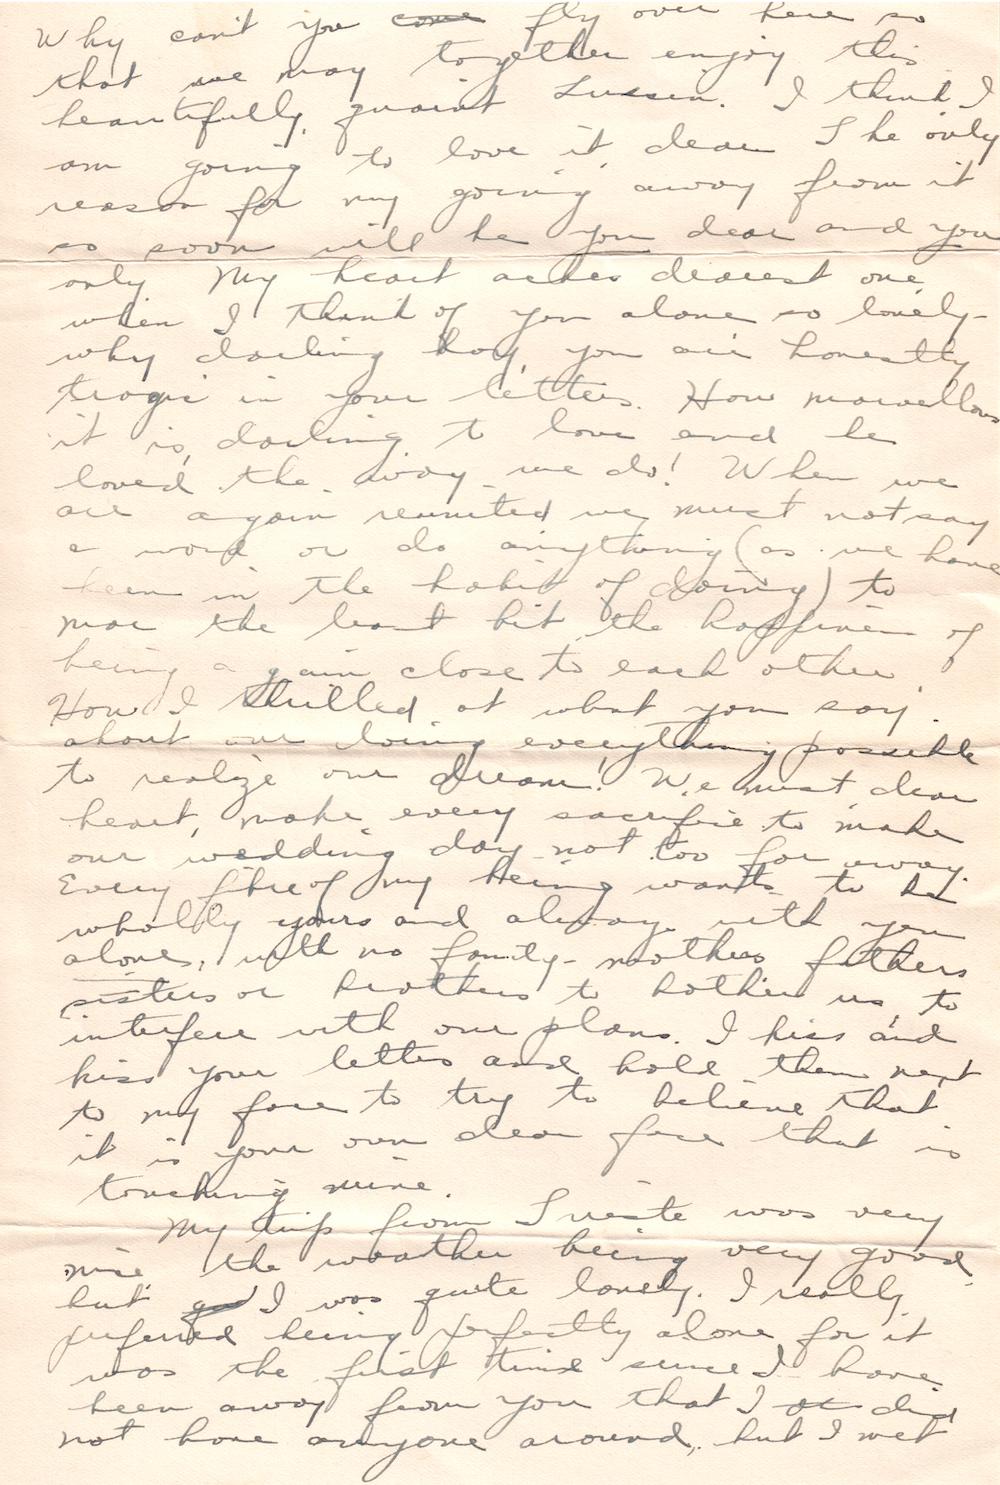 Why can't you come fly over here so
that we may together enjoy this
beautifully, quaint Lussin. I think I
am going to love it, dear The only
reason for my going away from it
so soon will be you dear and you
only. My heart aches dearest one,
when I think of you alone so lonely-
why darling boy, you are honestly
tragic in your letters. How marvellous
it is, darling, to love and be
loved the way we do! When we
are again reunited we must not say
a word or do anything (as we have
been in the habit of doing) to
mar the least bit the happiness of
being again close to each other.
How I thrilled at what you say
about our doing everything possible
to realize our dream! We must dear
heart, make every sacrifice to make
our wedding day not too far away.
Every fibre of my being wants to be
wholly yours and always with you
alone, with no family - mothers fathers
sisters or brothers to bother us, to
interfere with our plans. I kiss and
kiss your letters and hold them next
to my face to try to believe that
it is your own dear face that is
touching mine.
My trip from Trieste was very
nice, the weather being very good
but I was quite lonely. I really
preferred being perfectly alone for it
was the first time since I have
been away from you that I did
not have anyone around, but I met